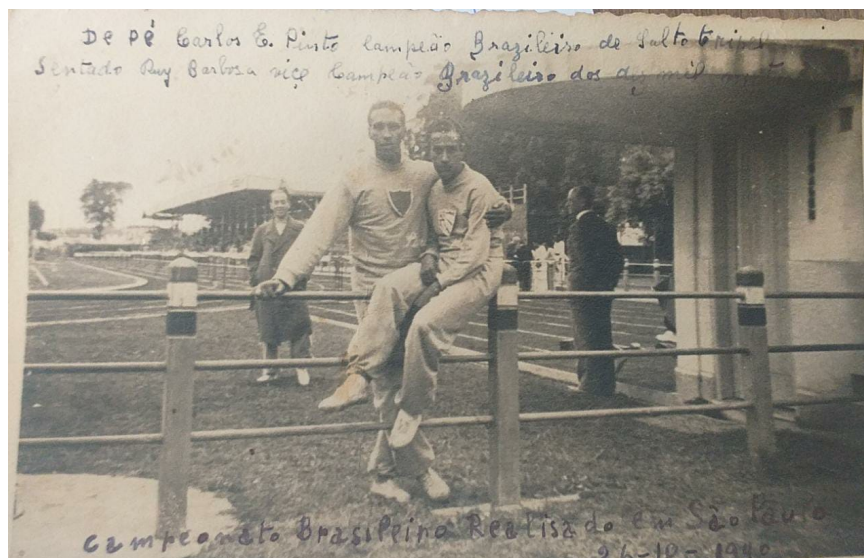 De pé Carlos E. Pinto Campeão Brazileiro de Salto Triplo
Sentado Ruy Barbosa vice Campeão Brazileiro dos dez mil
Campeonato Brasileiro Realisado em São Paulo